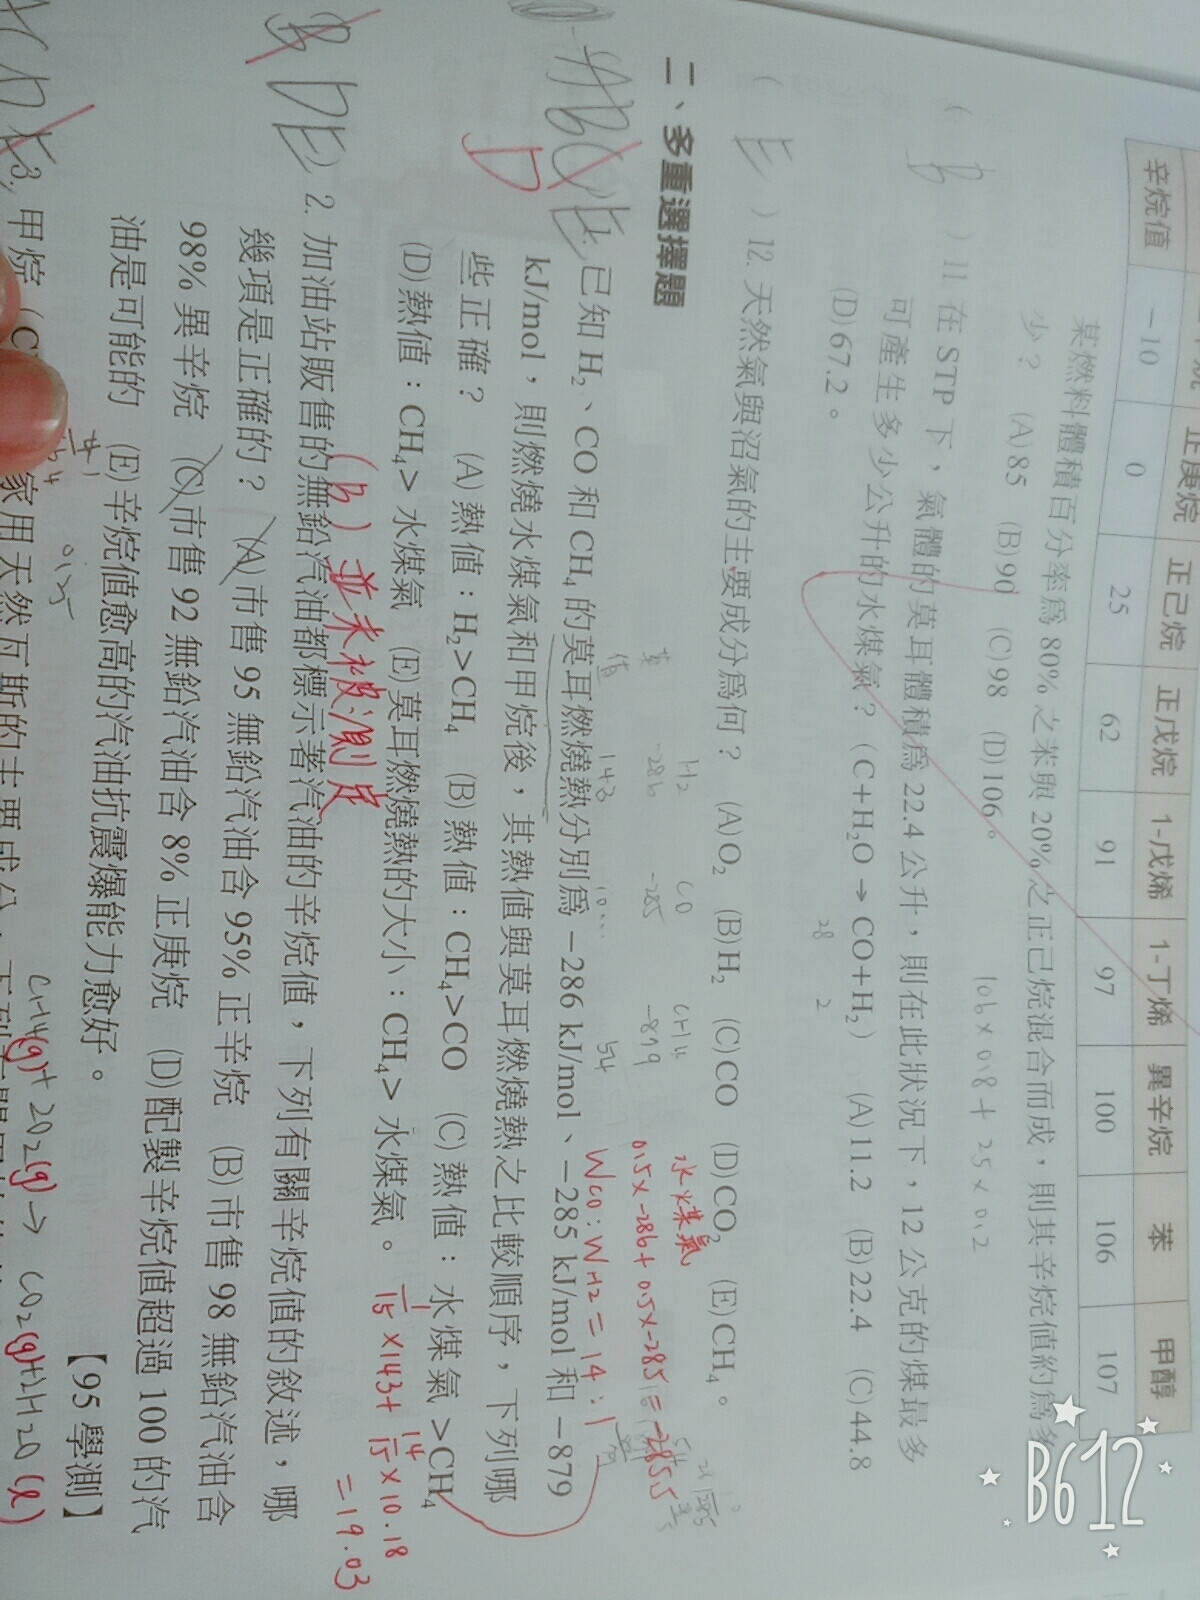 正庚烷 正己烷 正戊烷 1-戊烯 1-丁烯 異辛烷 苯 甲醇
辛烷值 -10 0 25 62 91 97 100 106 107
某燃料體積百分率為 80% 之苯與 20% 之正己烷混合而成，則其辛烷值約為多
少？ (A)85 (B)90 (C)98 (D)106。
106×0.8+25×0.2
( B ) 11. 在 STP 下，氣體的莫耳體積為 22.4 公升，則在此狀況下，12 公克的煤最多
可產生多少公升的水煤氣？（C+H₂O → CO+H₂） (A)11.2 (B)22.4 (C)44.8
(D)67.2。
28 2
( E ) 12. 天然氣與沼氣的主要成分為何？ (A)O₂ (B)H₂ (C)CO (D)CO₂ (E)CH₄。
二、多重選擇題
H2 CO CH4 水煤氣
-286 -285 -879 0.5×-286+0.5×-285=-285.5
值 143 10... 54 WCO:WH2=14:1
ABCE 已知 H₂、CO 和 CH₄ 的莫耳燃燒熱分別為 −286 kJ/mol、−285 kJ/mol 和 −879
D
kJ/mol，則燃燒水煤氣和甲烷後，其熱值與莫耳燃燒熱之比較順序，下列哪
些正確？ (A)熱值：H₂>CH₄ (B)熱值：CH₄>CO (C)熱值：水煤氣>CH₄
(D)熱值：CH₄> 水煤氣 (E)莫耳燃燒熱的大小：CH₄> 水煤氣。
1/15×143+14/15×10.18
=19.03
(B) 並未被測定
B DE 2. 加油站販售的無鉛汽油都標示著汽油的辛烷值，下列有關辛烷值的敘述，哪
幾項是正確的？ (A)市售 95 無鉛汽油含 95% 正辛烷 (B)市售 98 無鉛汽油含
98% 異辛烷 (C)市售 92 無鉛汽油含 8% 正庚烷 (D)配製辛烷值超過 100 的汽
油是可能的 (E)辛烷值愈高的汽油抗震爆能力愈好。
【95 學測】
CH4(g)+2O2(g)→CO2(g)+2H2O(l)
3. 甲烷
家用天然瓦斯的主要成分
B612